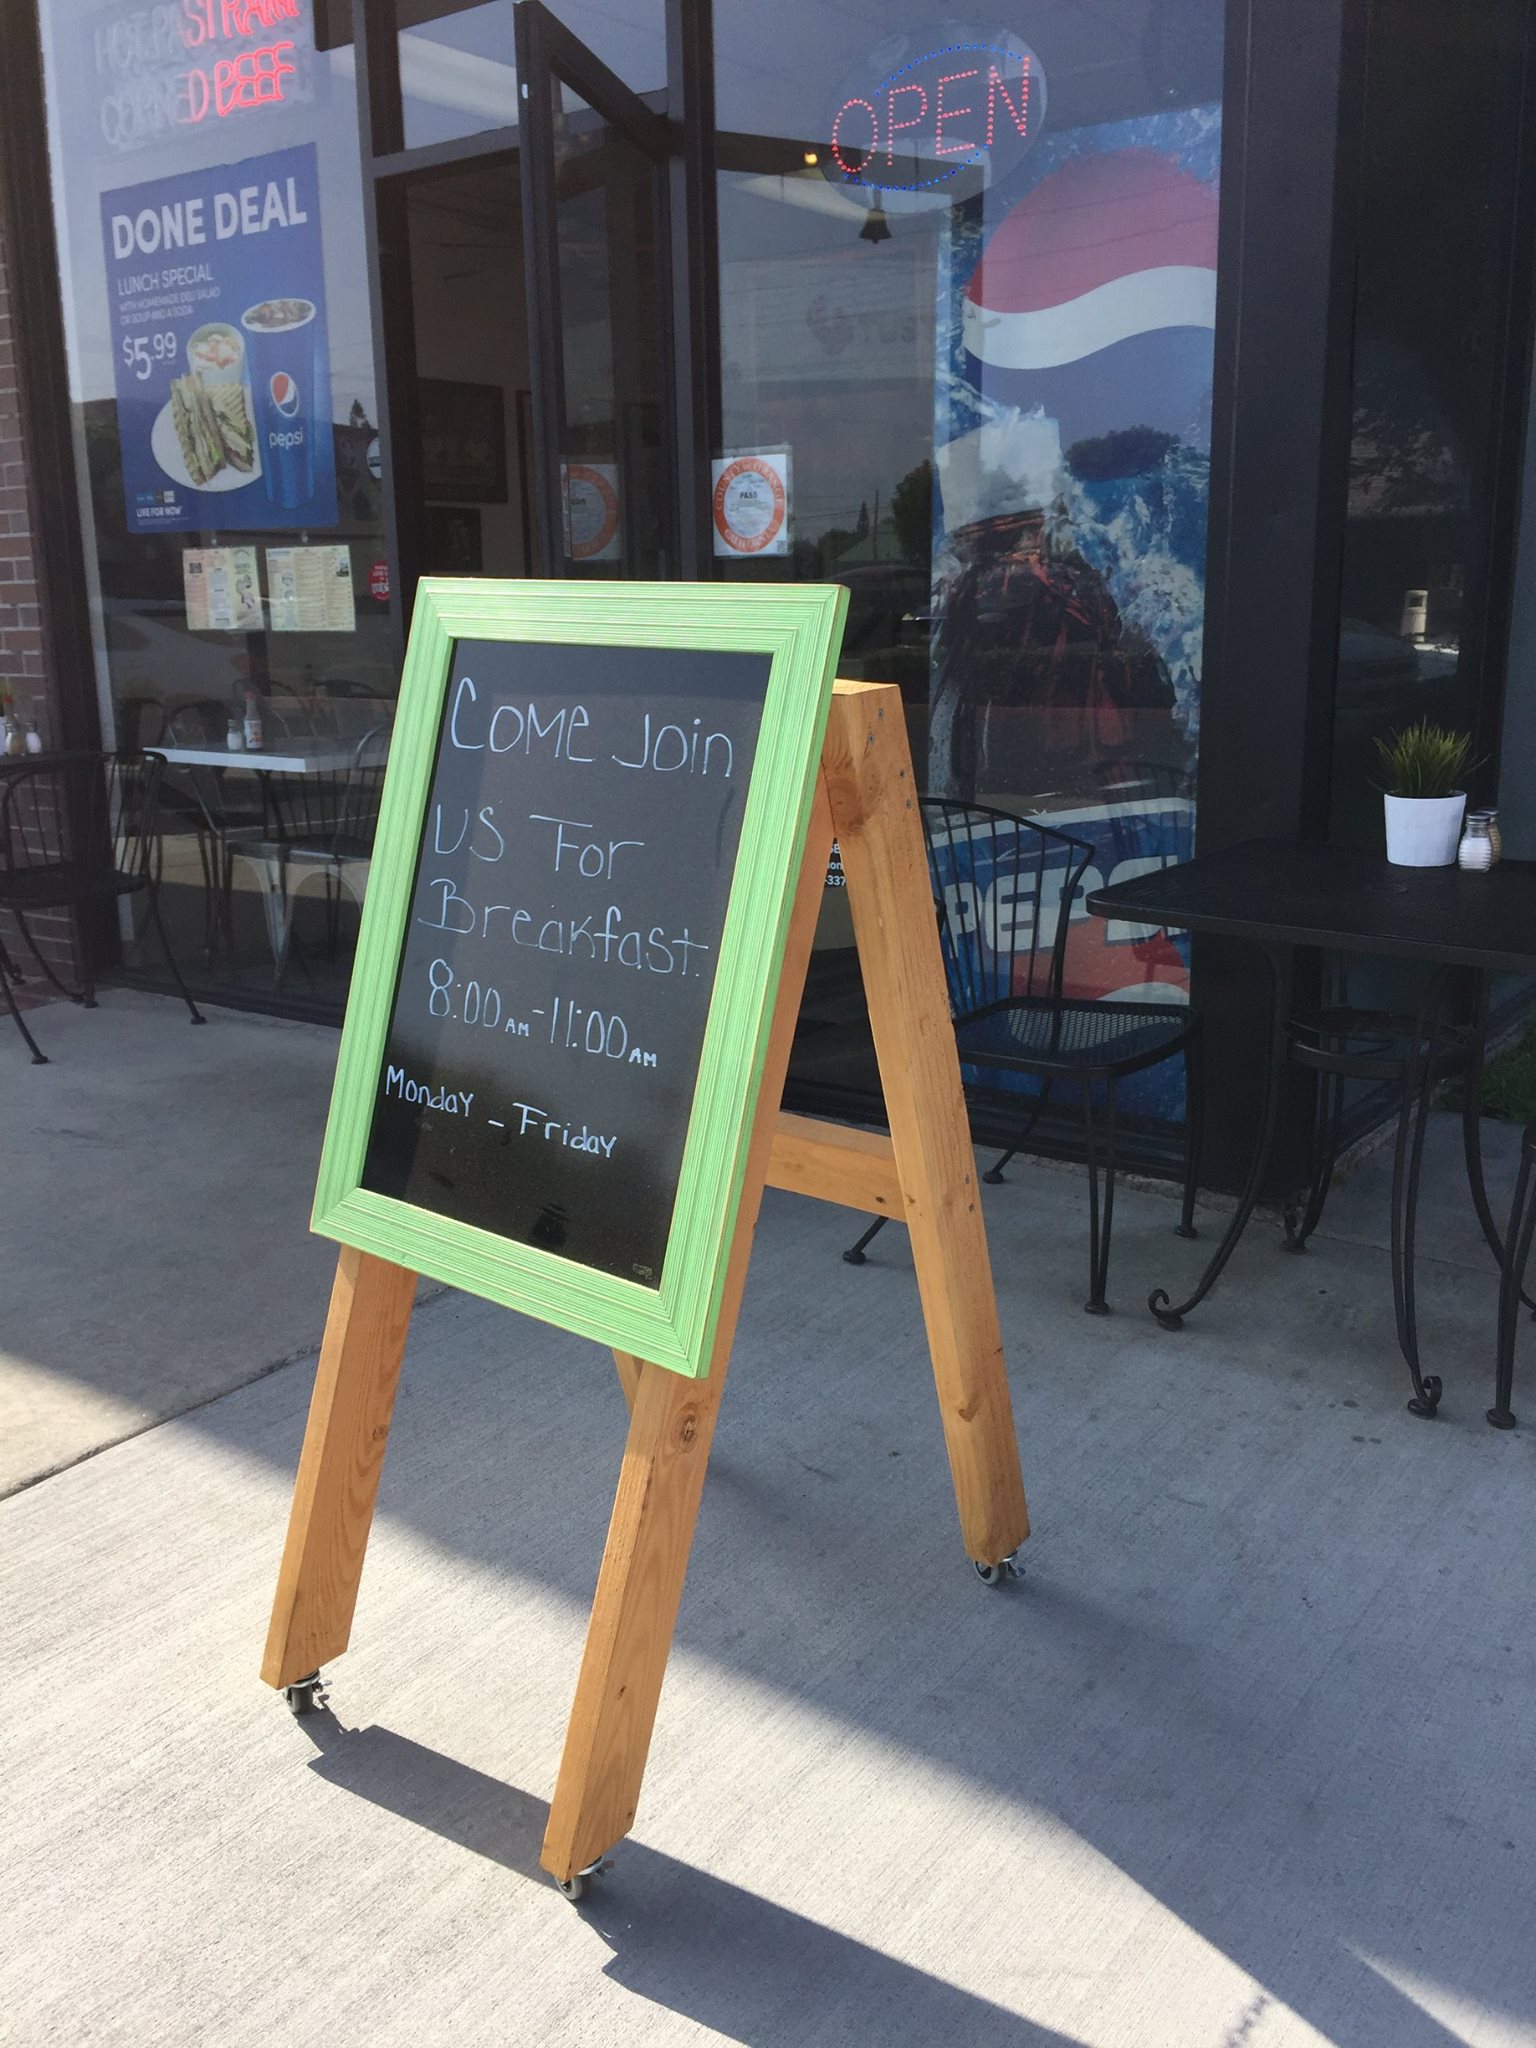 HOT PASTRAMI
CORNED BEEF
OPEN
DONE DEAL
LUNCH SPECIAL
WITH HOMEMADE DELI SALAD
OR SOUP AND A SODA
$5.99
pepsi
LIVE FOR NOW
COUNTY OF ORANGE
PASS
CALIFORNIA
COME JOIN
US FOR
BreakfasT.
8:00 AM - 11:00 AM
Monday - Friday
PEPSI